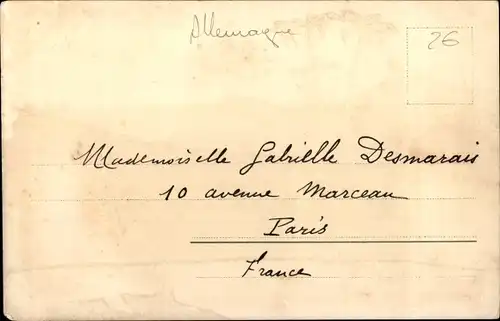 Allemagne
26
Mademoiselle Gabrielle Desmarais
10 avenue Marceau
Paris
France